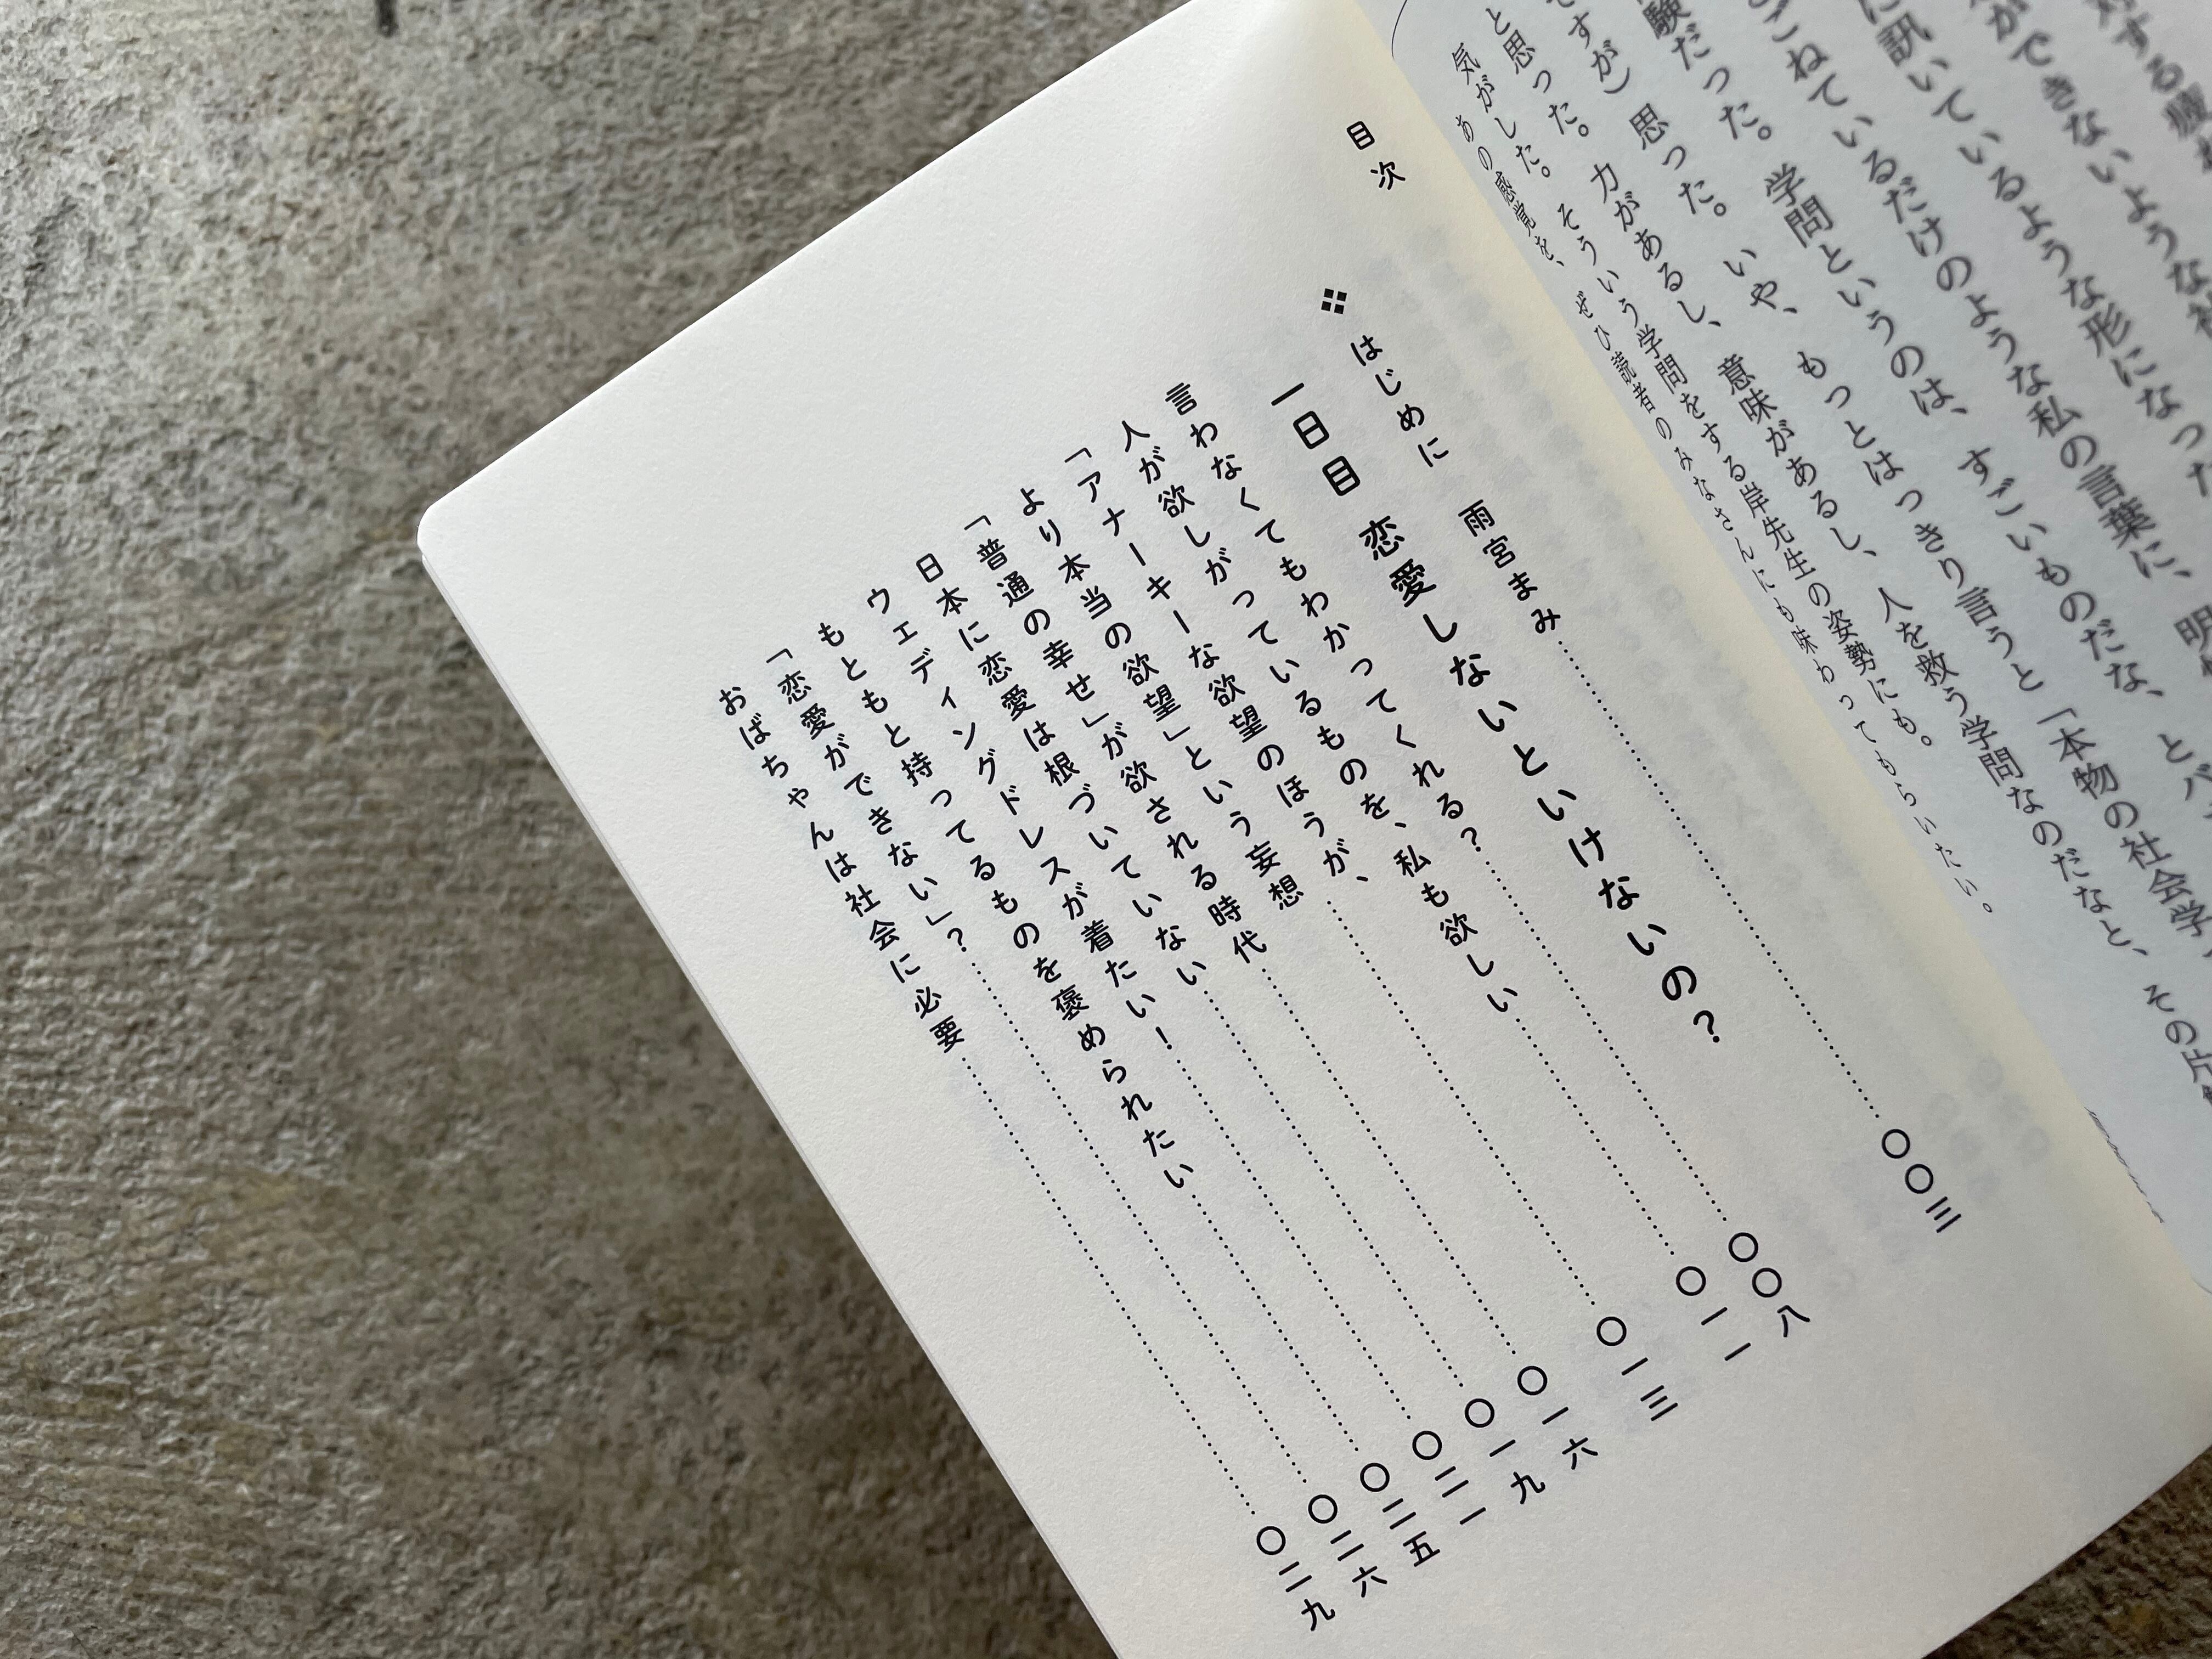 ができないような
に訊いているような形になった
こねているだけのような私の言葉に、
験だった。学問というのは、すごいものだな、と
すが）思った。いや、もっとはっきり言うと「本物の社会学
と思った。力があるし、意味があるし、人を救う学問なのだなと、その片
気がした。そういう学問をする岸先生の姿勢にも。
あの感覚を、ぜひ読者のみなさんにも味わってもらいたい。
目次
❖ はじめに 雨宮まみ……〇〇三
一日目 恋愛しないといけないの？
言わなくてもわかってくれる？……〇〇八
人が欲しがっているものを、私も欲しい……〇一一
「アナーキーな欲望のほうが、……〇一三
より本当の欲望」という妄想
「普通の幸せ」が欲される時代……〇一六
日本に恋愛は根づいていない……〇一九
ウェディングドレスが着たい！……〇二一
もともと持ってるものを褒められたい……〇二五
「恋愛ができない」？……〇二六
おばちゃんは社会に必要……〇二九